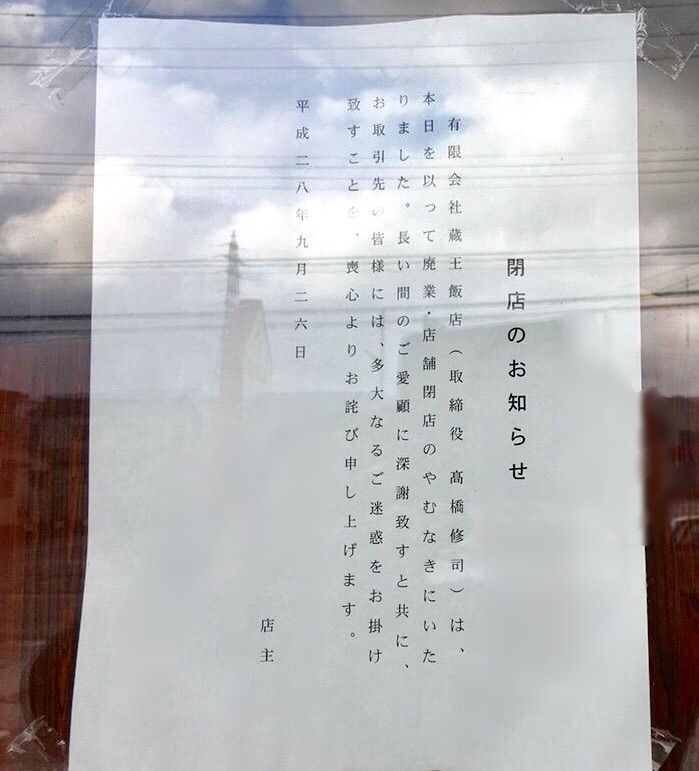 閉店のお知らせ
有限会社蔵王飯店（取締役　髙橋修司）は、
本日を以って廃業・店舗閉店のやむなきにいた
りました。長い間のご愛顧に深謝致すと共に、
お取引先の皆様には、多大なるご迷惑をお掛け
致すことを、喪心よりお詫び申し上げます。
平成二八年九月二六日
店主